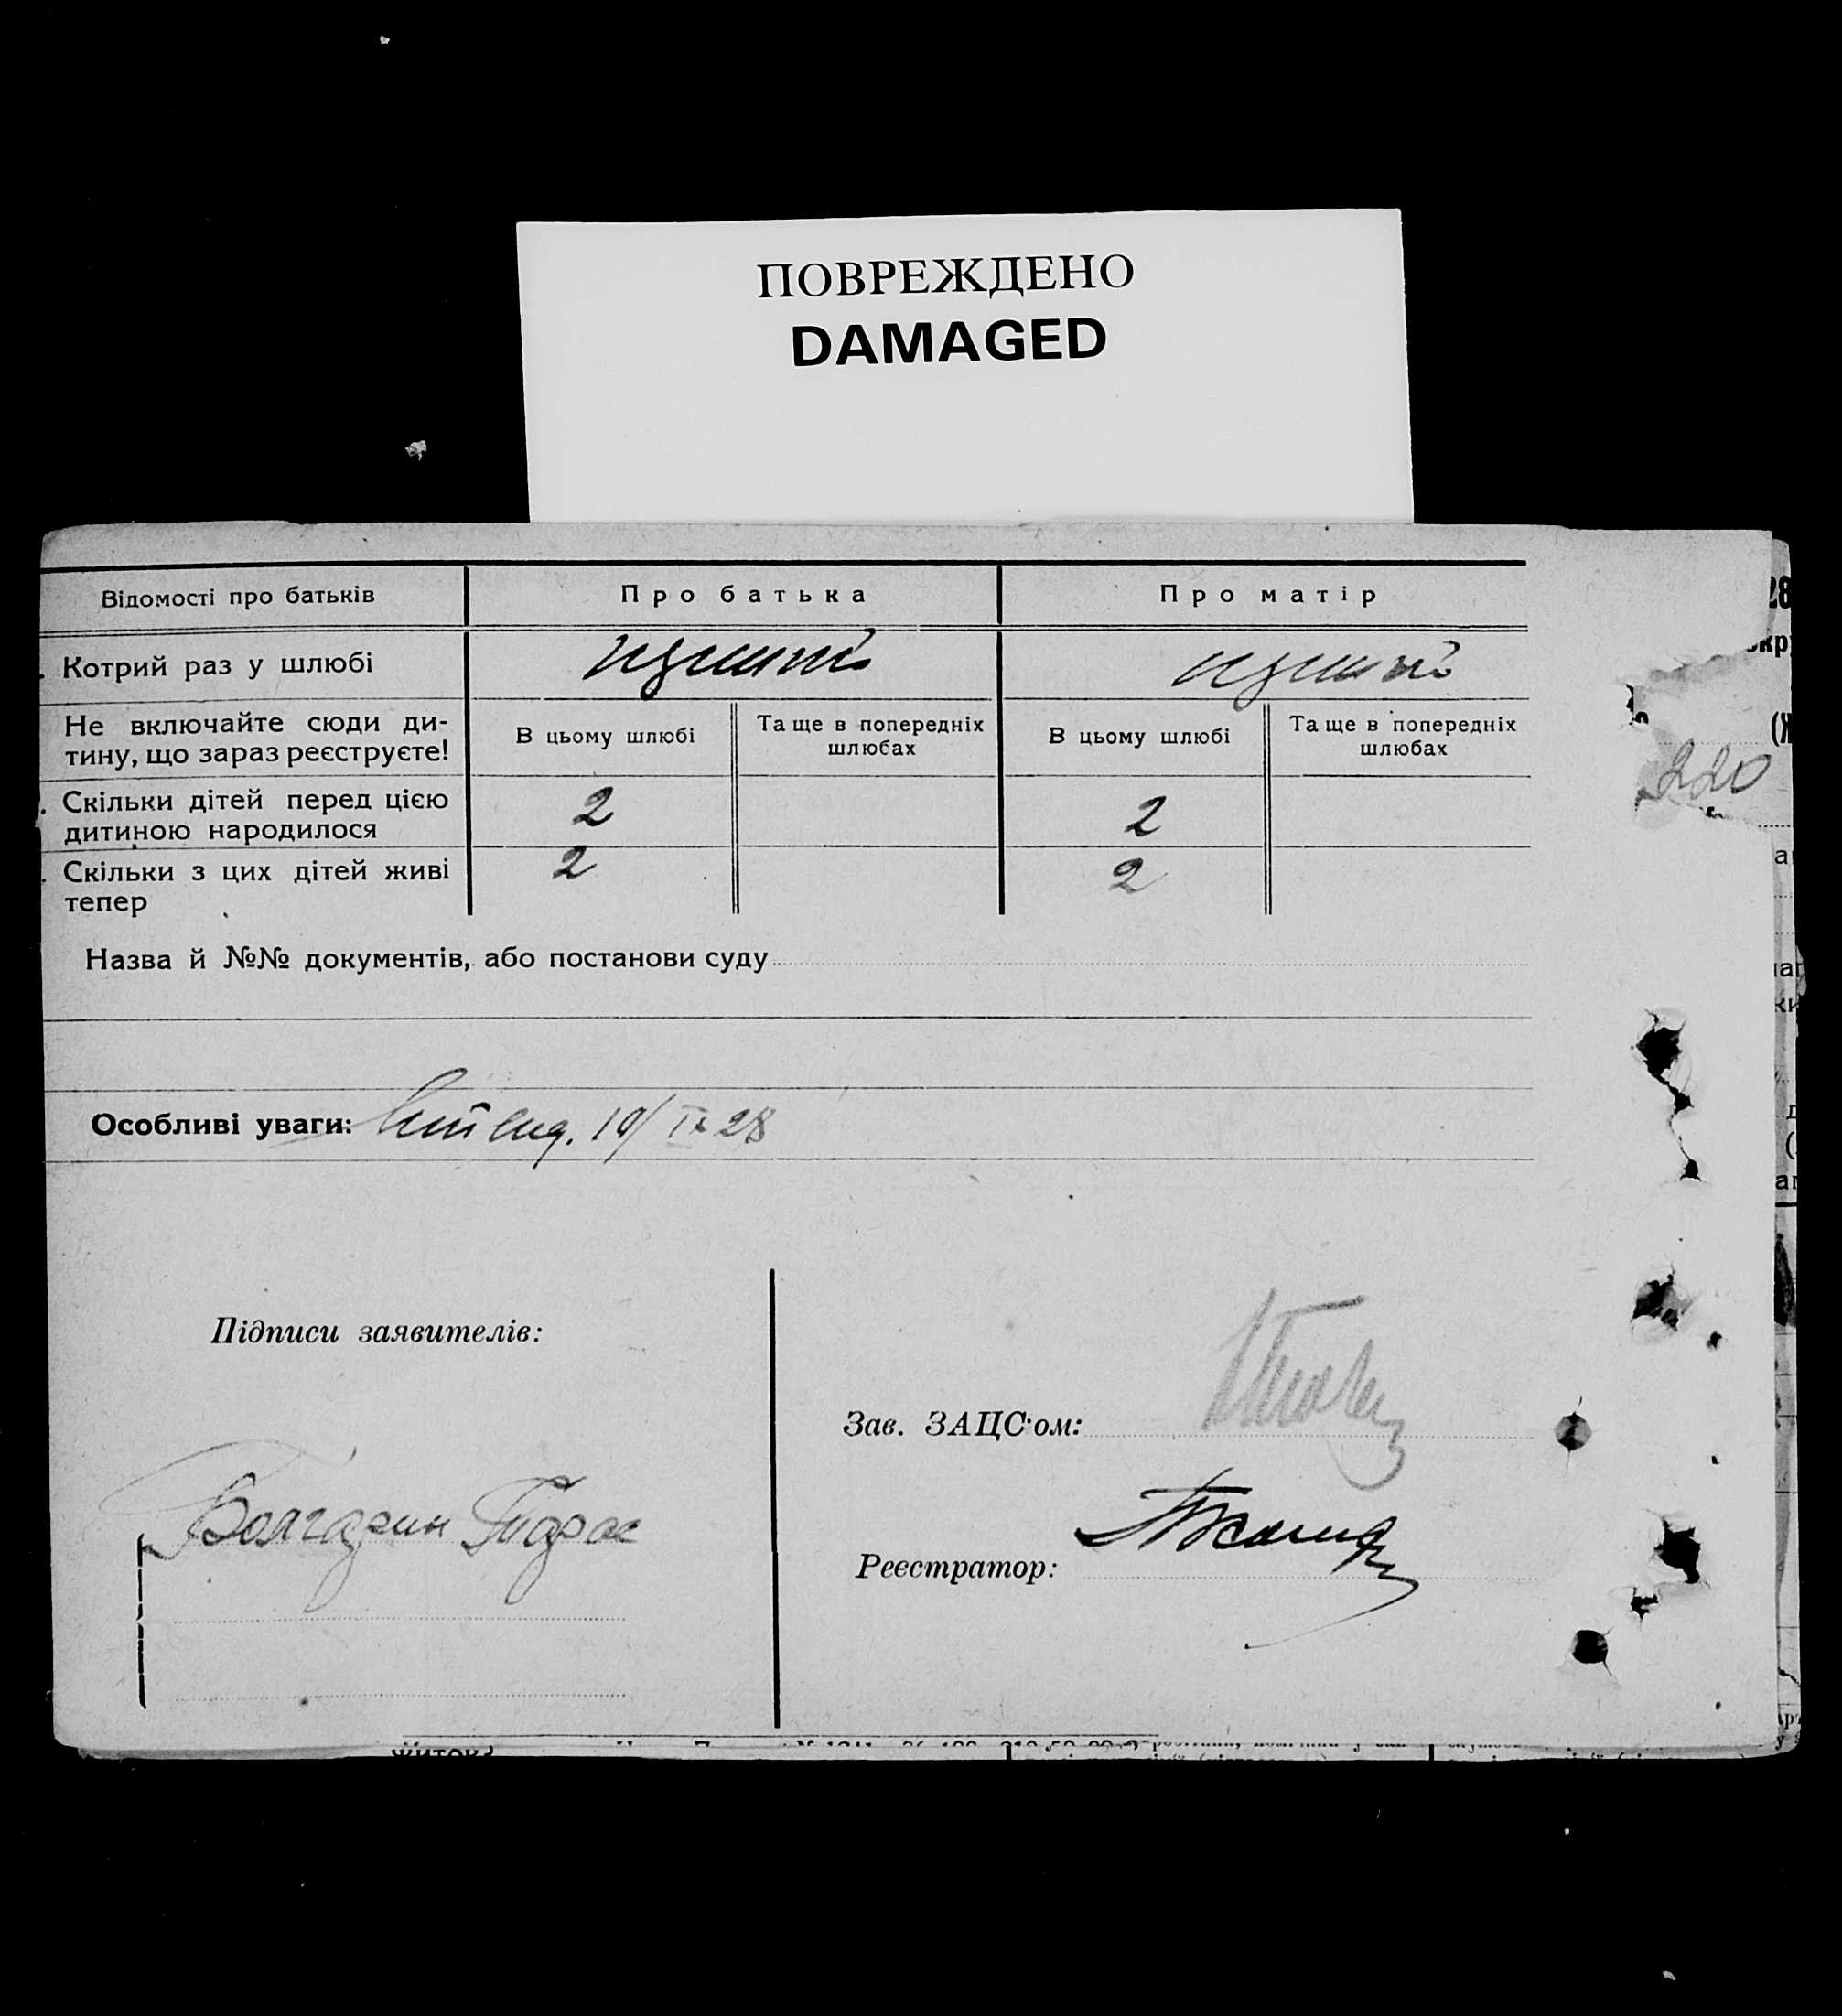 ПОВРЕЖДЕНО
DAMAGED
Відомості про батьків
Про батька
Про матір
Котрий раз у шлюбі
Не включайте сюди ди-
тину, що зараз реєструєте!
В цьому шлюбі
Та ще в попередніх
шлюбах
В цьому шлюбі
Та ще в попередніх
шлюбах
Скільки дітей перед цією
дитиною народилося
2
2
Скільки з цих дітей живі
тепер
2
2
220
Назва й №№ документів, або постанови суду
Особливі уваги: 19/IX 28
Підписи заявителів:
Зав. ЗАЦС'ом:
Болгарин Тарас
Реєстратор: